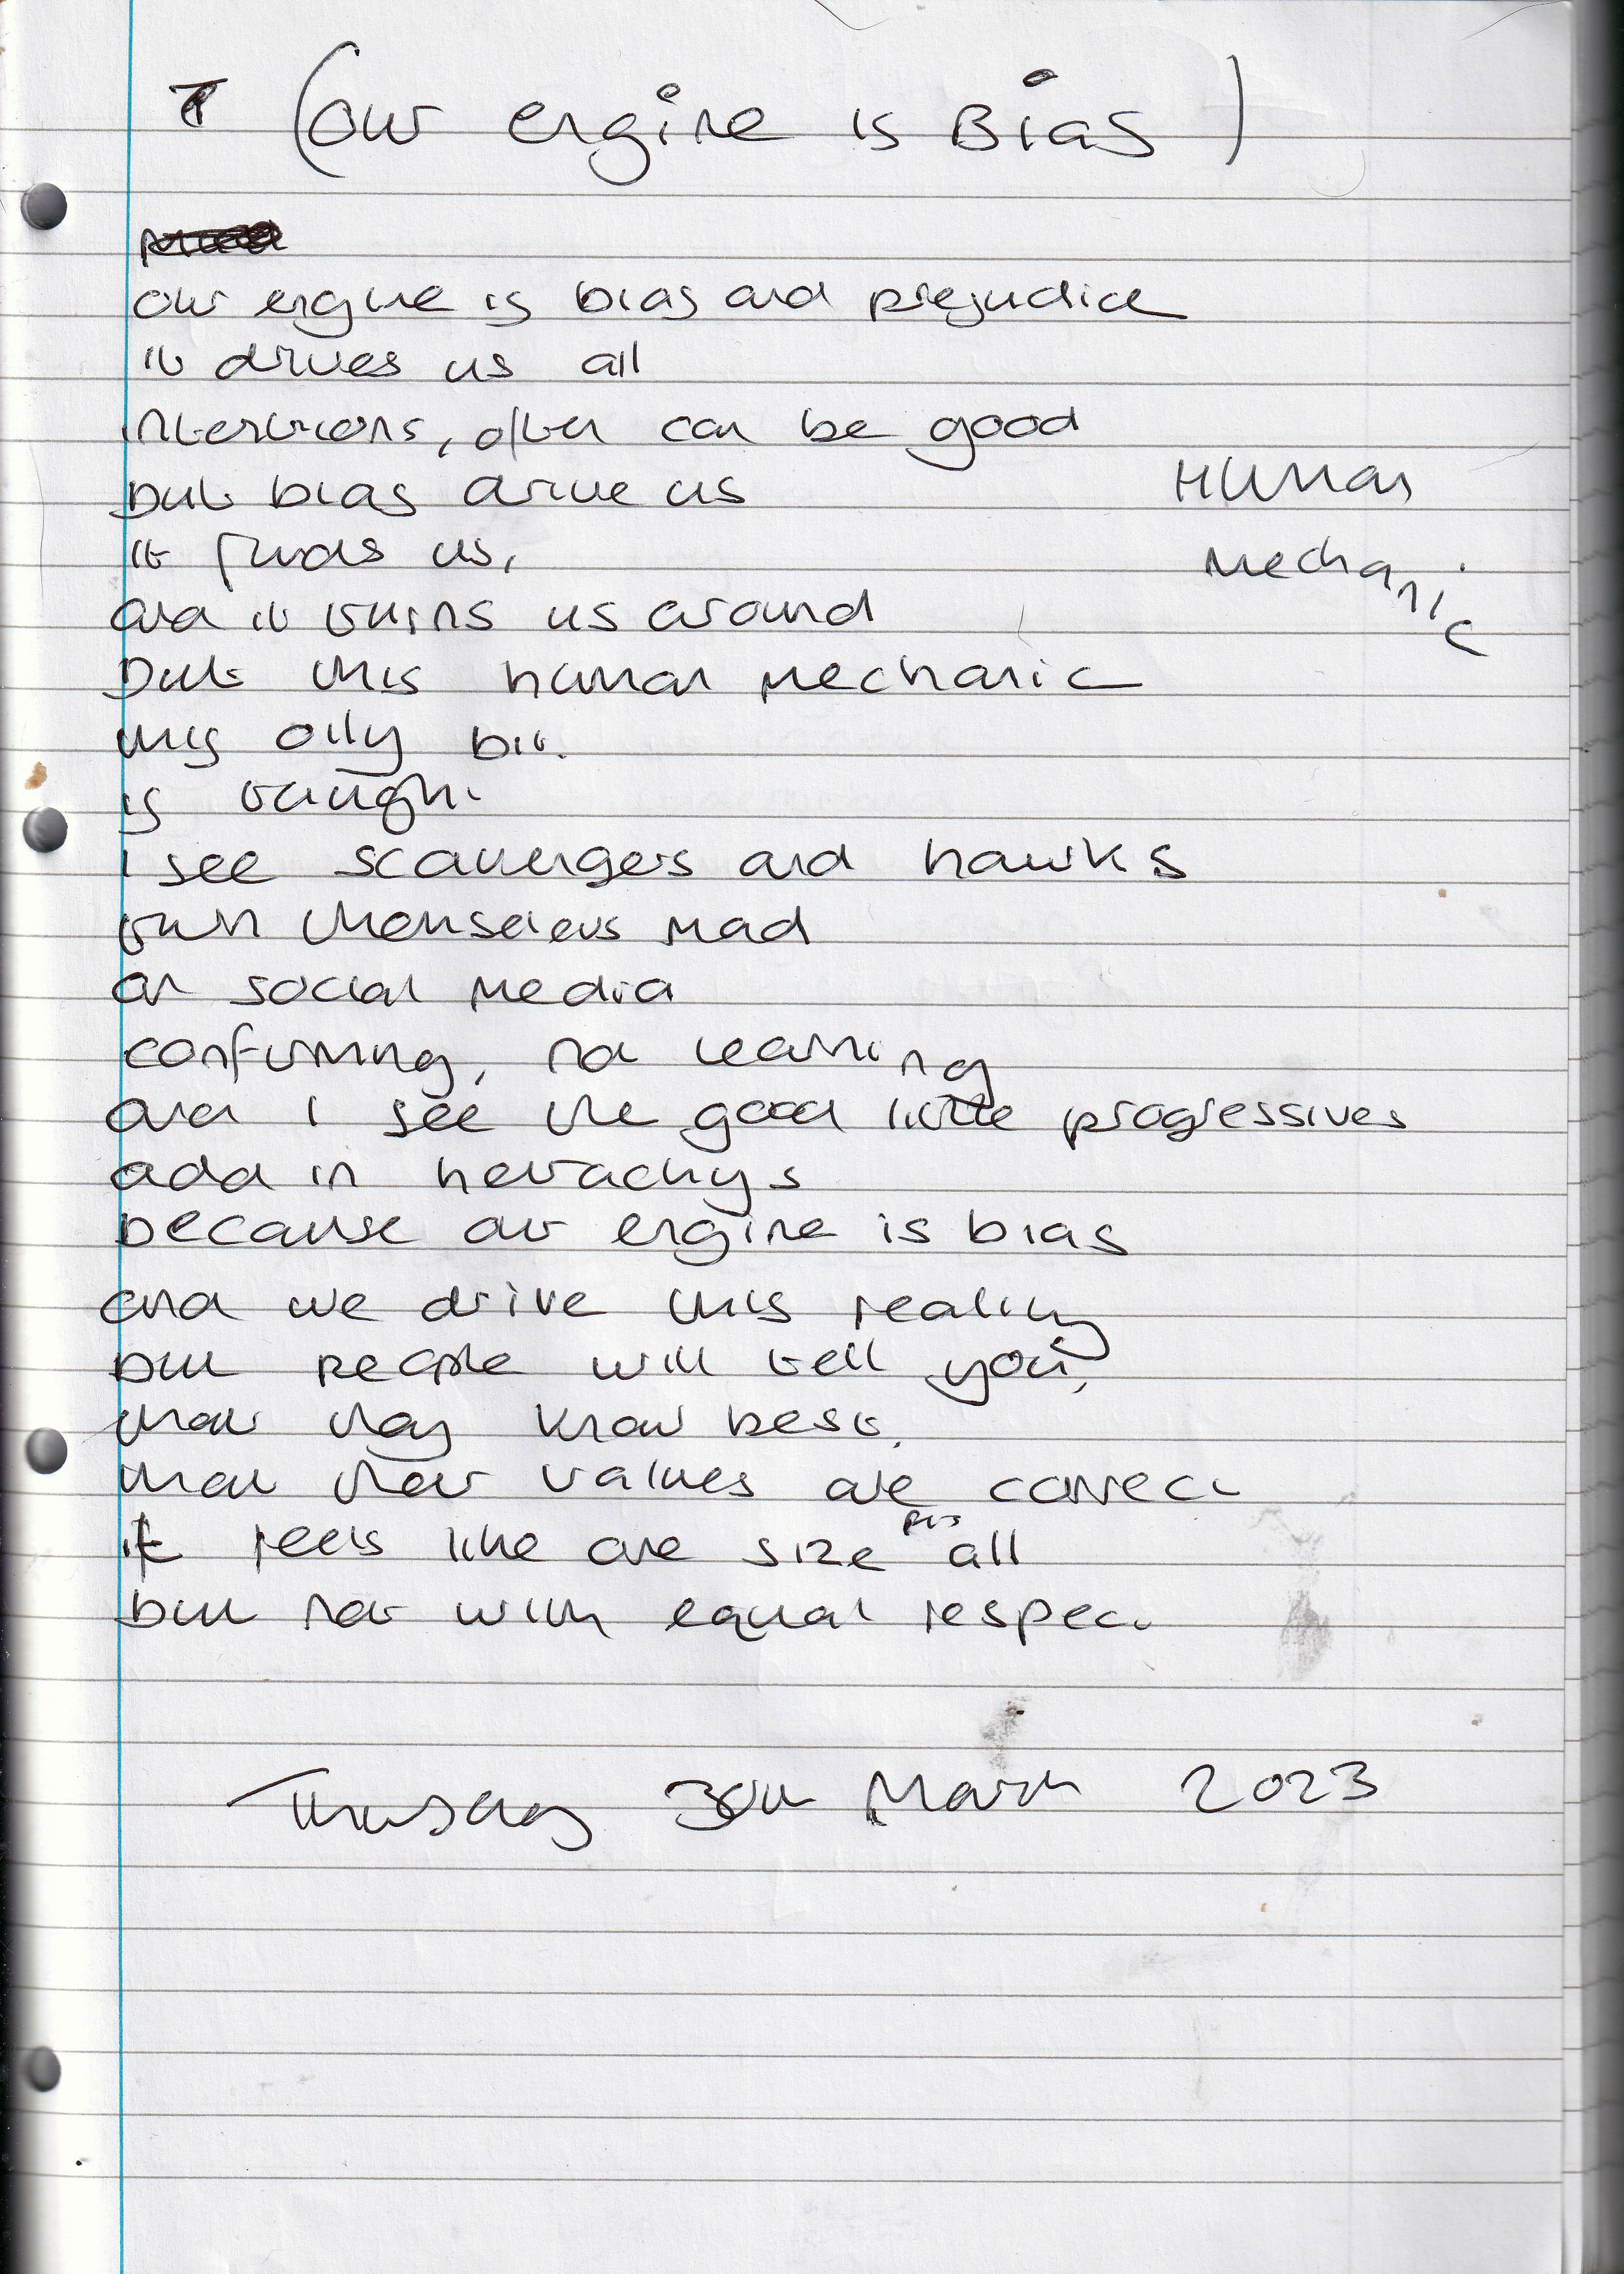 (our engine is Bias)
our engine is bias and prejudice
it drives us all
intentions, often can be good
but bias drive us
it finds us,
and it turns us around
but this human mechanic
Human
Mechanic
this oily bit
is taught
I see scavengers and hawks
turn themselves mad
on social media
confirming, not learning
and I see the good little progressives
add in heirachys
because our engine is bias
and we drive this reality
but people will tell you,
that they know best,
that their values are correct
it feels like one size fits all
but not with equal respect
Thursday 30th March 2023